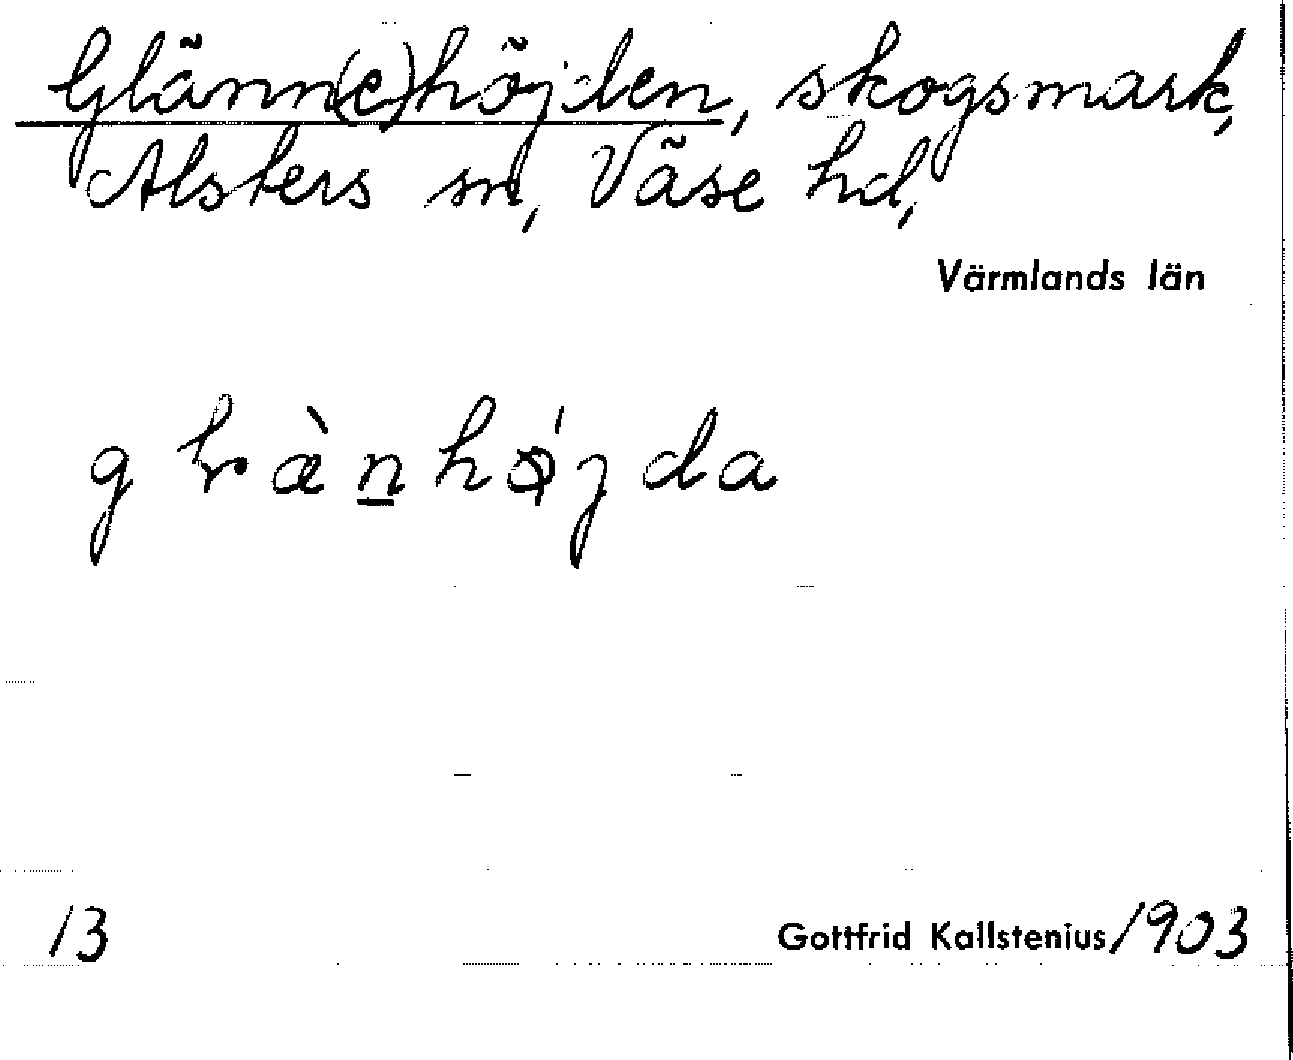 Glänn(e)höjden, skogsmark,
Alsters sn, Väse hd,
Värmlands län
13
Gottfrid Kallstenius/1903